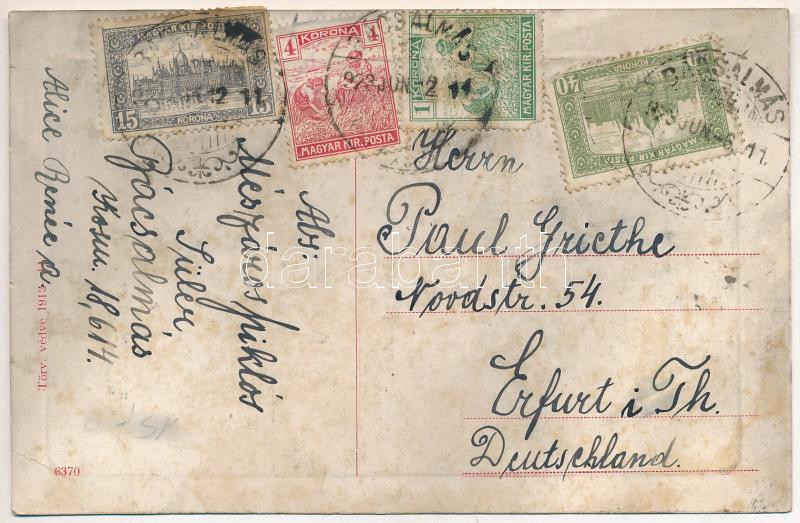 MAGYAR KIR. POSTA
15 15
KORONA
4 KORONA 4
MAGYAR KIR. POSTA
1 KORONA
MAGYAR KIR. POSTA
40 KORONA 40
MAGYAR KIR. POSTA
BÁCSALMÁS
923 JUN 12 11
Herrn
Paul Griethe
Nordstr. 54.
Erfurt i Th.
Deutschland.
Abs:
Mészáros Miklós
Bácsalmás
Alice Renée, a.
Törv. védve 1913.
6370
darabanth